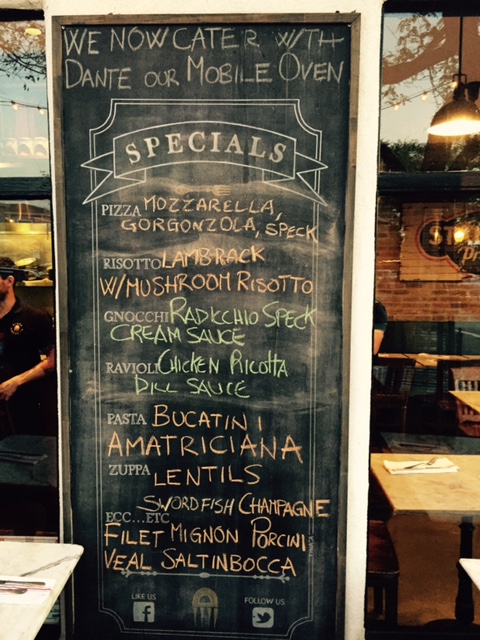 WE NOW CATER WITH
DANTE OUR MOBILE OVEN
SPECIALS
PIZZA MOZZARELLA,
GORGONZOLA, SPECK
RISOTTO LAMB RACK
W/MUSHROOM RISOTTO
GNOCCHI RADICCHIO SPECK
CREAM SAUCE
RAVIOLI CHICKEN RICOTTA
DILL SAUCE
PASTA BUCATINI
AMATRICIANA
ZUPPA LENTILS
SWORDFISH CHAMPAGNE
ECC...ETC
FILET MIGNON PORCINI
VEAL SALTINBOCCA
LIKE US
FOLLOW US